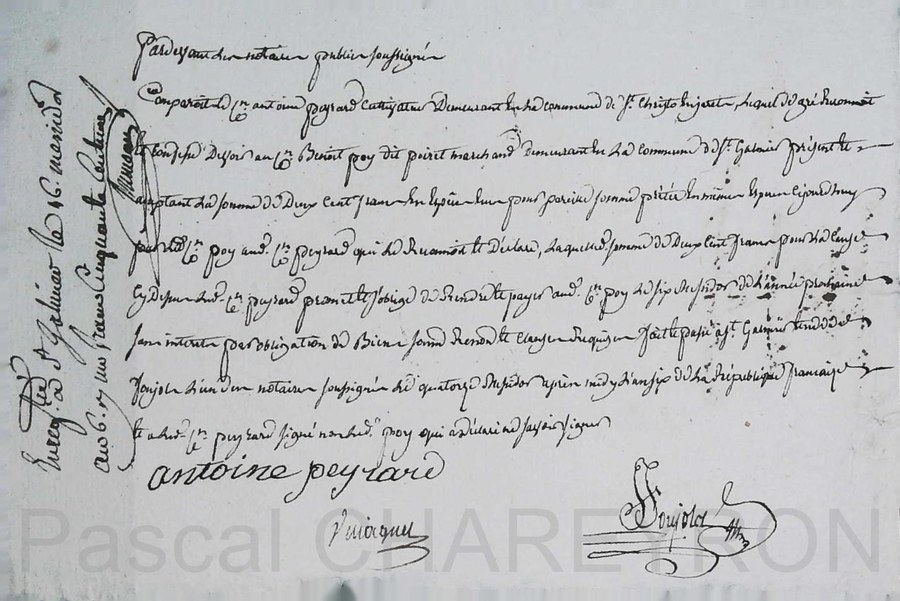 Pardevant les notaires publics soussignés
Comparoit le Cen antoine peyrard Cultivateur Demeurant en la commune de St. Christo Lejarets, Lequel de gré Reconnoit
et Confesse Devoir au Cen. Benoit poy dit peiret marchand demeurant en La Commune de St. Galmier présent et
acceptant La somme de Deux Cent francs En Espèce Eue pour pareille somme prêtée En même Espece Cejourd'huy
par Led. Cen poy aud. Cen peyrard qui Le Reconnoit et Déclare, Laquelle somme de Deux Cent francs pour La Cause
Cy dessus Led. Cen peyrard promet et s'oblige de Rendre et payer aud. Cen poy Le six messidor de L'année prochaine
sans interets par obligation de Biens soumis Renon. et Clauses Requises fait et passé à St. Galmier Etude de
Joujole L'un des notaires soussignés Le quatorze messidor après midy L'an six de La République française
et a Led. Cen peyrard signé non Led. poy qui a déclaré ne savoir signer
antoine peyrard
Joujole
Enreg. à St Galmier le 16. messidor
an 6. R un franc Cinquante Centimes
Pascal CHAREYRON